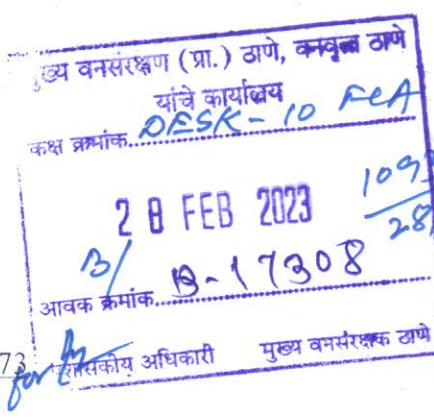 ख्य वनसंरक्षण (प्रा.) ठाणे, वनवृत्त ठाणे
यांचे कार्यालय
कक्ष क्रमांक. DESK - 10 FCA
28 FEB 2023
109
28
B/
आवक क्रमांक. B-17308
73
for
शासकीय अधिकारी मुख्य वनसंरक्षक ठाणे